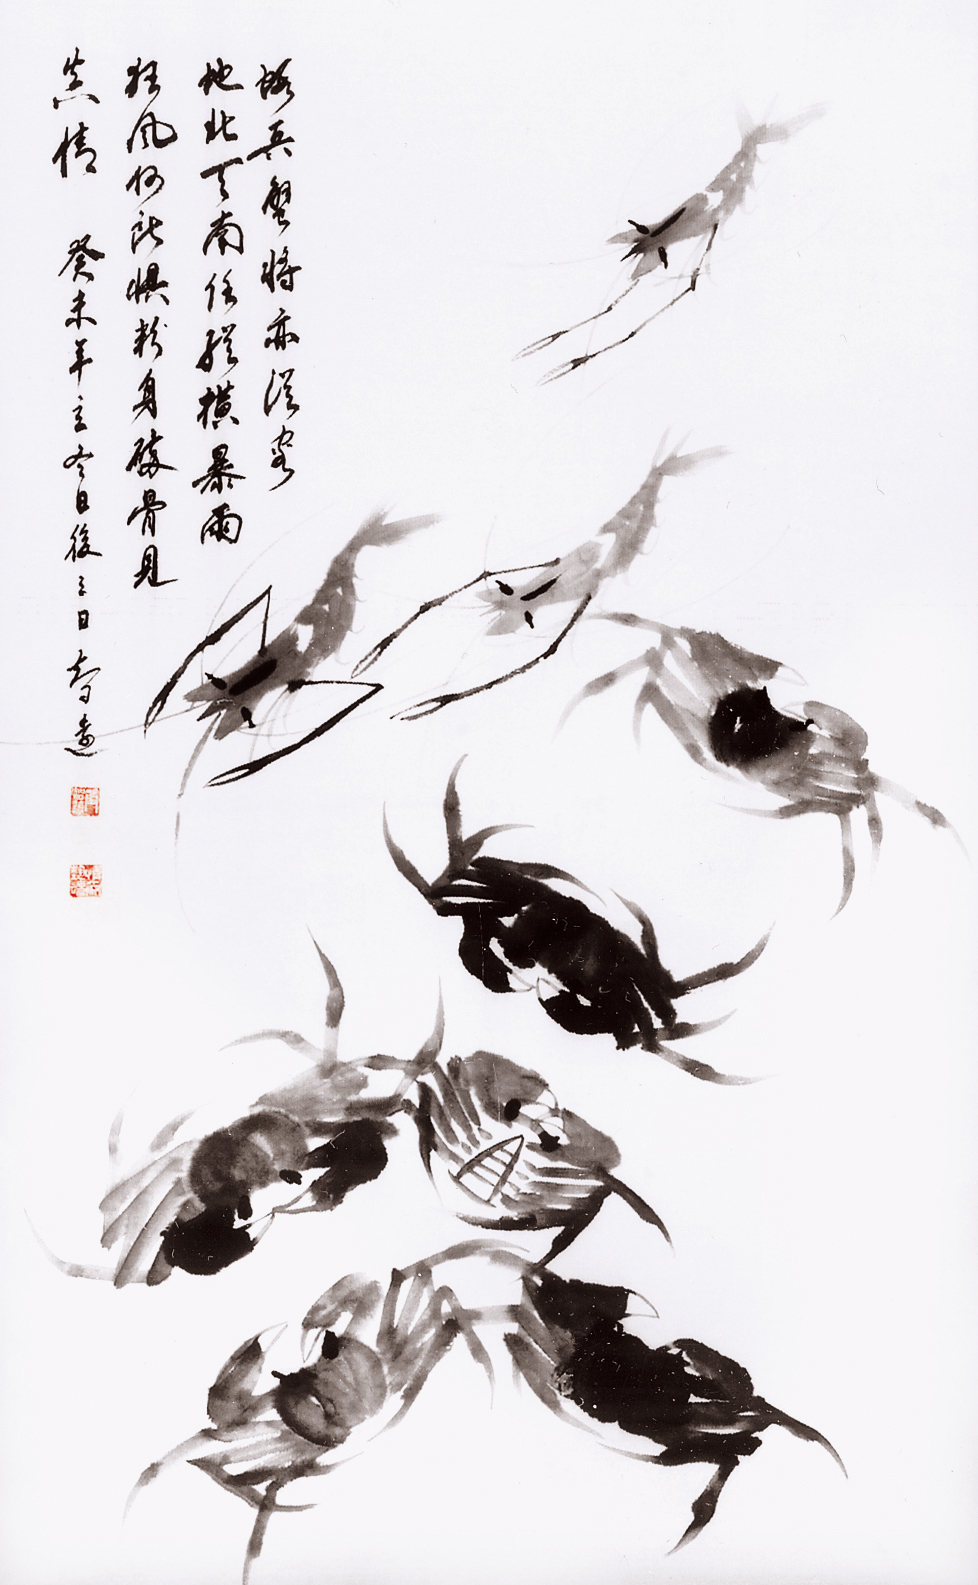 蝦兵蟹將亦從容
地北天南任縱橫暴雨
狂風何所懼粉身碎骨見
真情 癸未年立冬日後三日